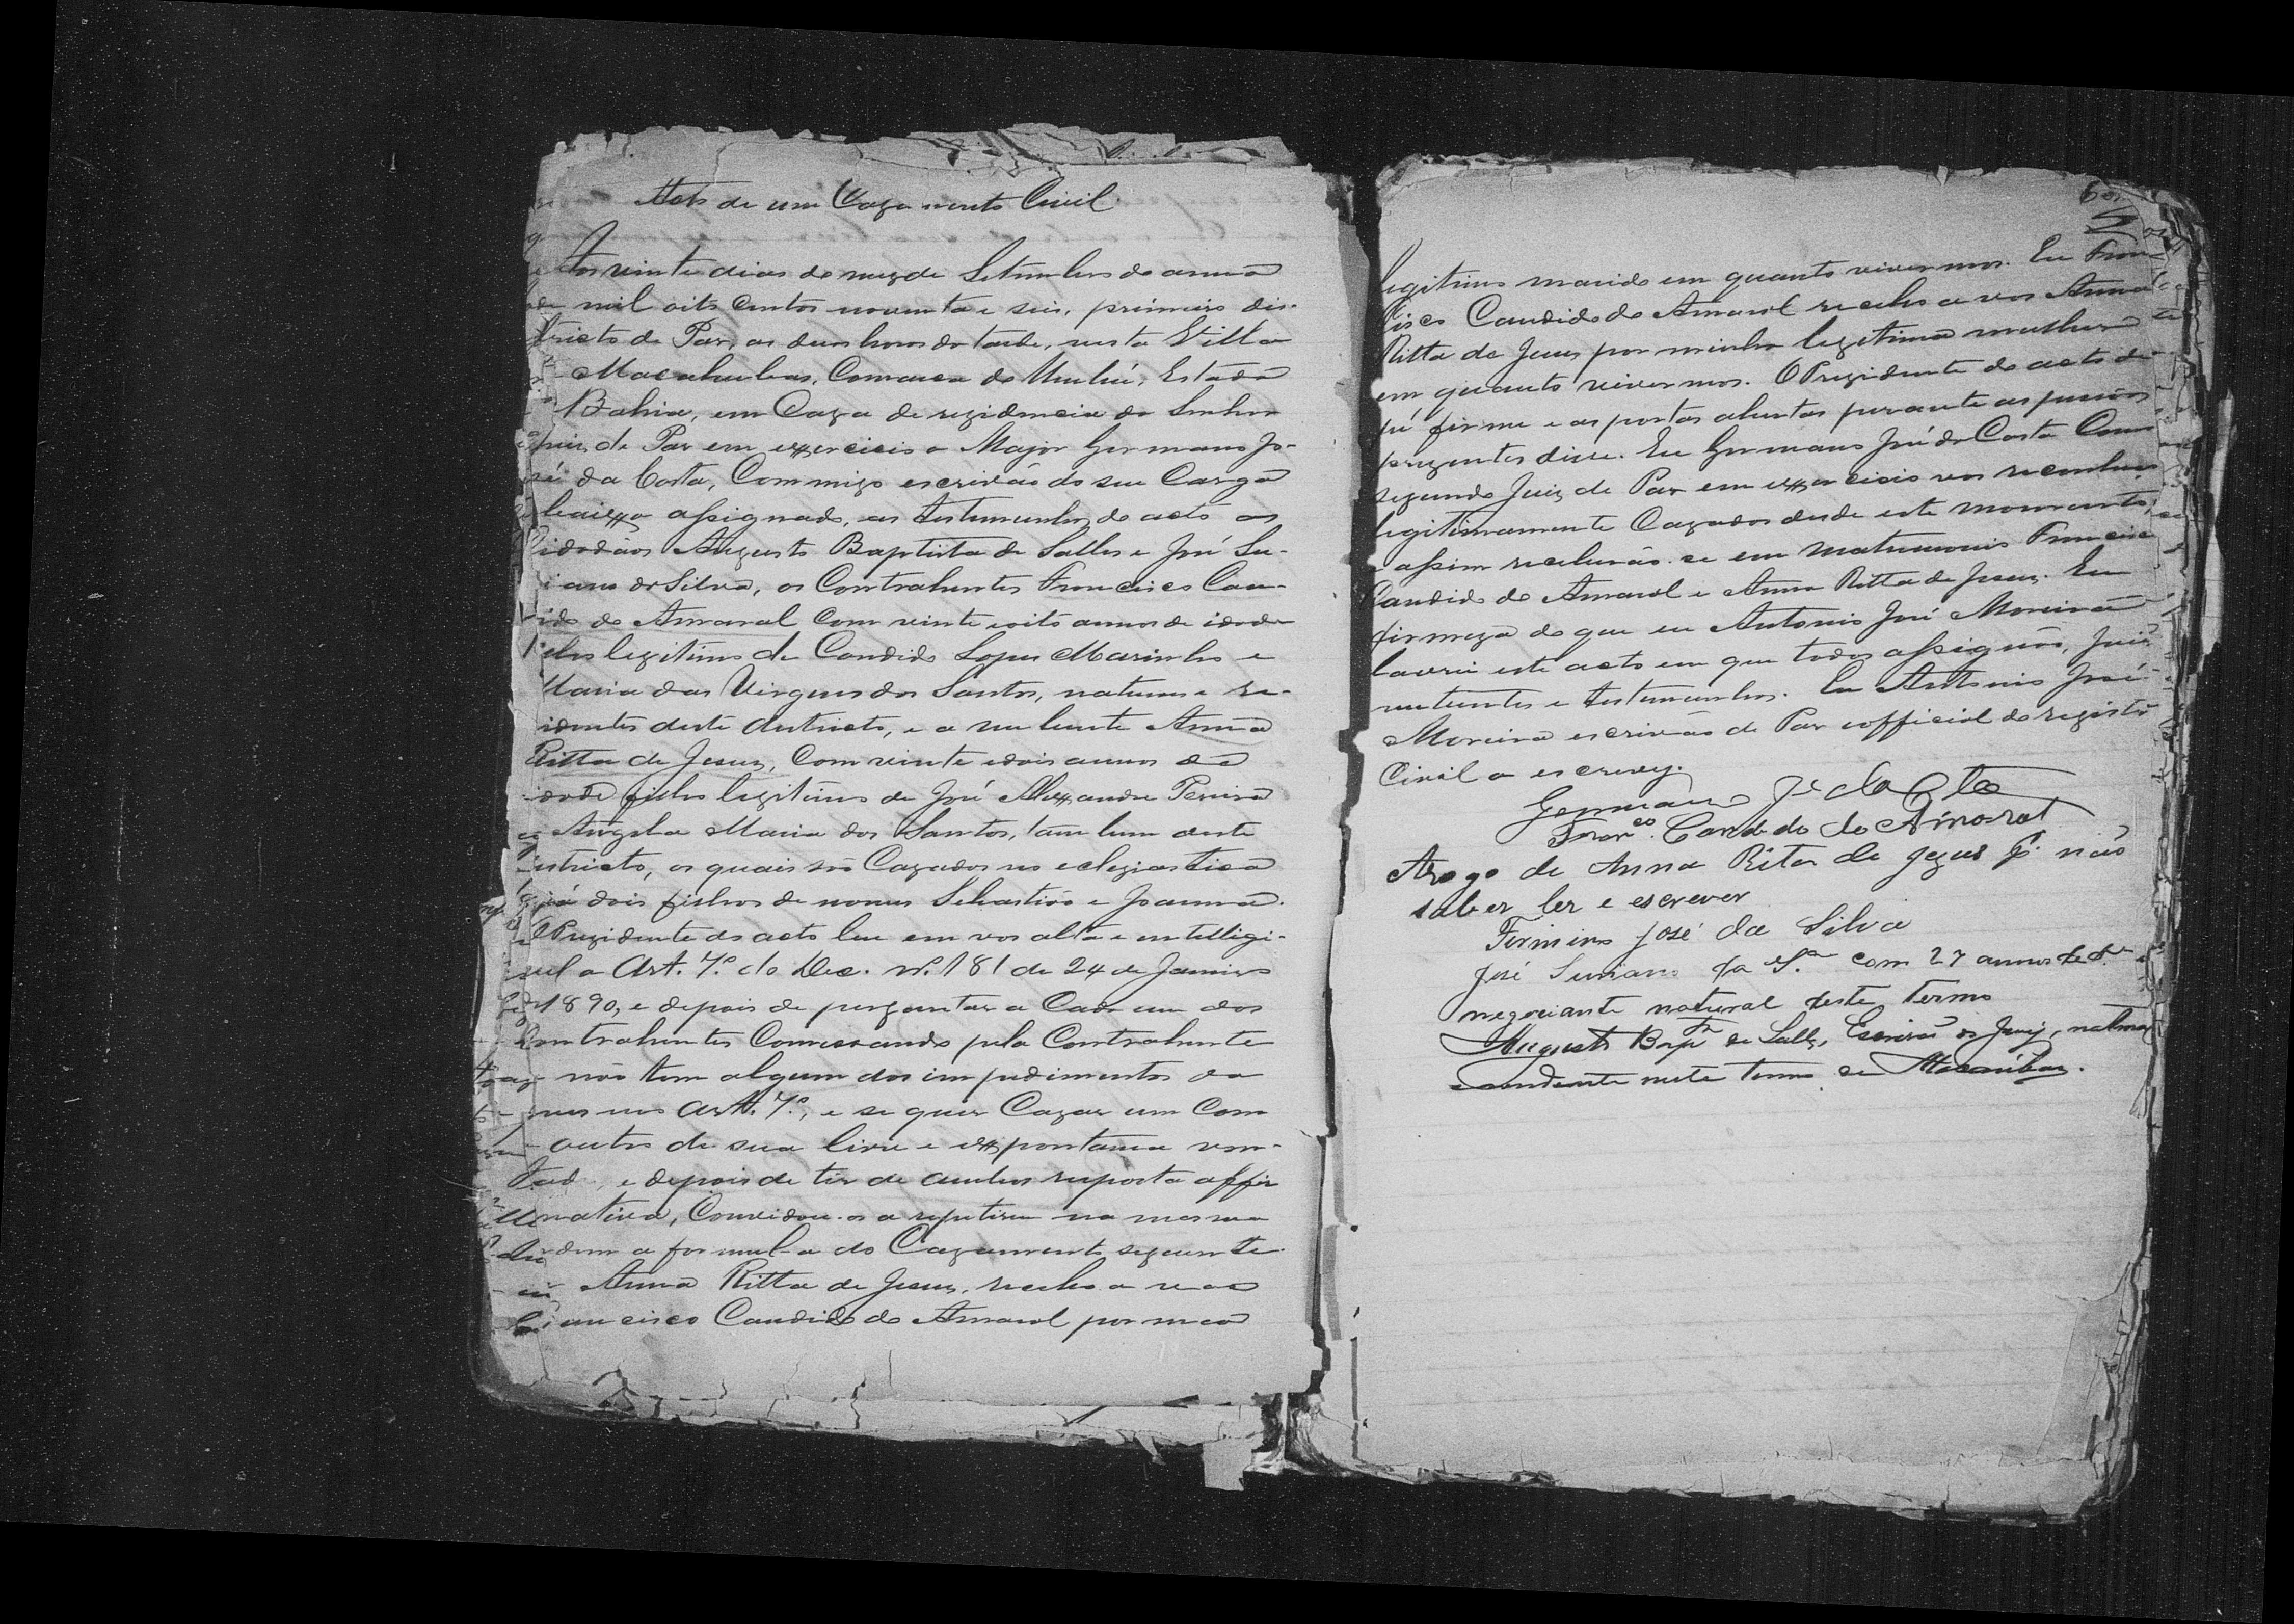 Acto de um Cazamento Civil.
Aos vinte dias do mez de Setembro do anno
de mil oito centos noventa e seis, primeiro dis-
tricto de Paz, as duas horas da tarde, nesta Villa
Macahubas, Comarca do Urubú, Estado
Bahia, em Caza de rezidencia do Senhor
juiz de Paz em exercicio o Major Germano Jo-
sé da Costa, Commigo escrivão do seu Cargo
baixo assignado, as testemunhas do acto os
cidadãos Augusto Baptista de Salles e José Su-
iano da Silva, os Contrahentes Francisco Can-
ido do Amaral com vinte e oito annos de idade
filho legitimo de Candido Lopes Marinho e
Maria das Virgens dos Santos, naturaes e re-
identes deste districto, e a nubente Anna
Ritta de Jesus, com vinte e dois annos de
idade filha legitima de José Alexandre Pereira
e Angela Maria dos Santos, tambem deste
istricto, os quais são Cazados no eclegiastico
já dois filhos de nomes Sebastião e Joanna.
O Prezidente do acto leu em vos alta e intelligi-
vel o Art. 7º do Dec. nº 181 de 24 de Janeiro
de 1890, e depois de perguntar a Cada um dos
Contrahentes Comessando pela Contrahente
não tem algum dos impedimentos do
no Art. 7º, e se quer Cazar um Com
outro de sua livre e expontanea von-
tade, e depois de ter de ambos resposta affir
mativa, Convidou-os a repetirem na mesma
ordem a formula do Cazamento seguinte.
Anna Ritta de Jesus, recebo a vos
Francisco Candido do Amaral por meo
legitimo marido em quanto vivermos. Eu Fran-
cisco Candido do Amaral recebo a vos Anna
Ritta de Jesus por minha legitima mulher
em quanto vivermos. O Prezidente do acto de
pé firme e as portas abertas perante as pessoas
prezentes disse. Eu Germano José da Costa Como
segundo Juiz de Paz em exercicio vos reconheço
legitimamente Cazados desde este momento,
e assim receberão-se em matrimonio Francisco
Candido do Amaral e Anna Ritta de Jesus. Em
firmeza do que eu Antonio José Moreira
lavrei este acto em que todos assignão, Juiz
nubentes e testemunhas. Eu Antonio José
Moreira escrivão de Paz e official do registro
Civil o escrevy.
Germano Jé da Cta
Franco. Candido do Amaral
Arogo de Anna Rita de Jezus pr. não
saber ler e escrever
Firmino José da Silva
José Suriano da Sa com 27 annos de de
negociante natural deste termo
Augusto Bapta de Salles, Escrivão do Juiz, natural
e rezidente neste termo de Macaúbas.